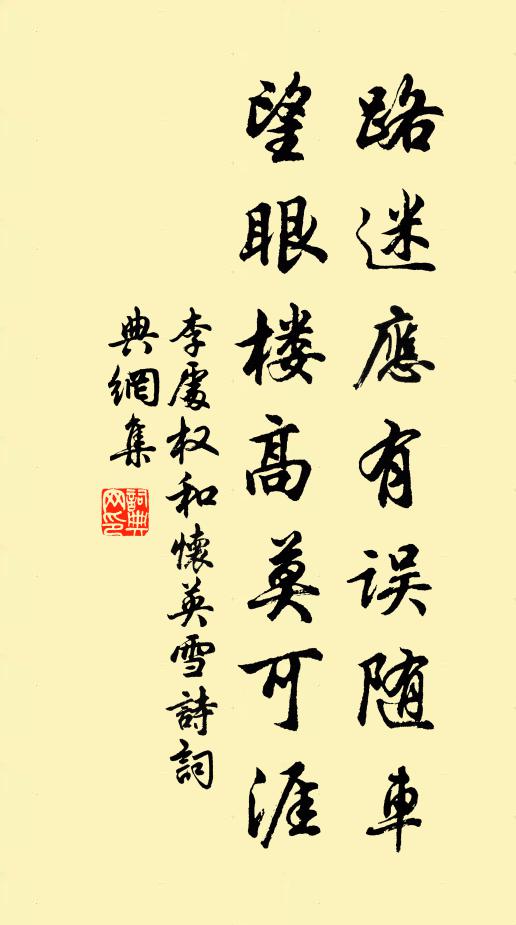 路迷應有误随車
望眼楼高莫可涯
李處权和懷英雪詩詞
典網集
詞典网印